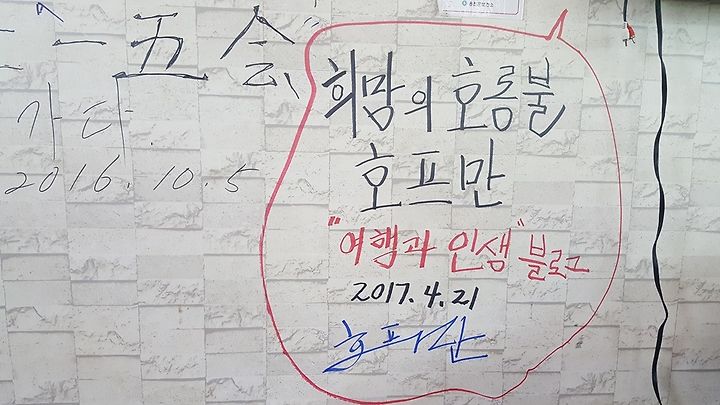 一五会"
가다
2016.10.5
희망의 호롱불
호프만
"여행과 인생" 블로그
2017.4.21
호프만